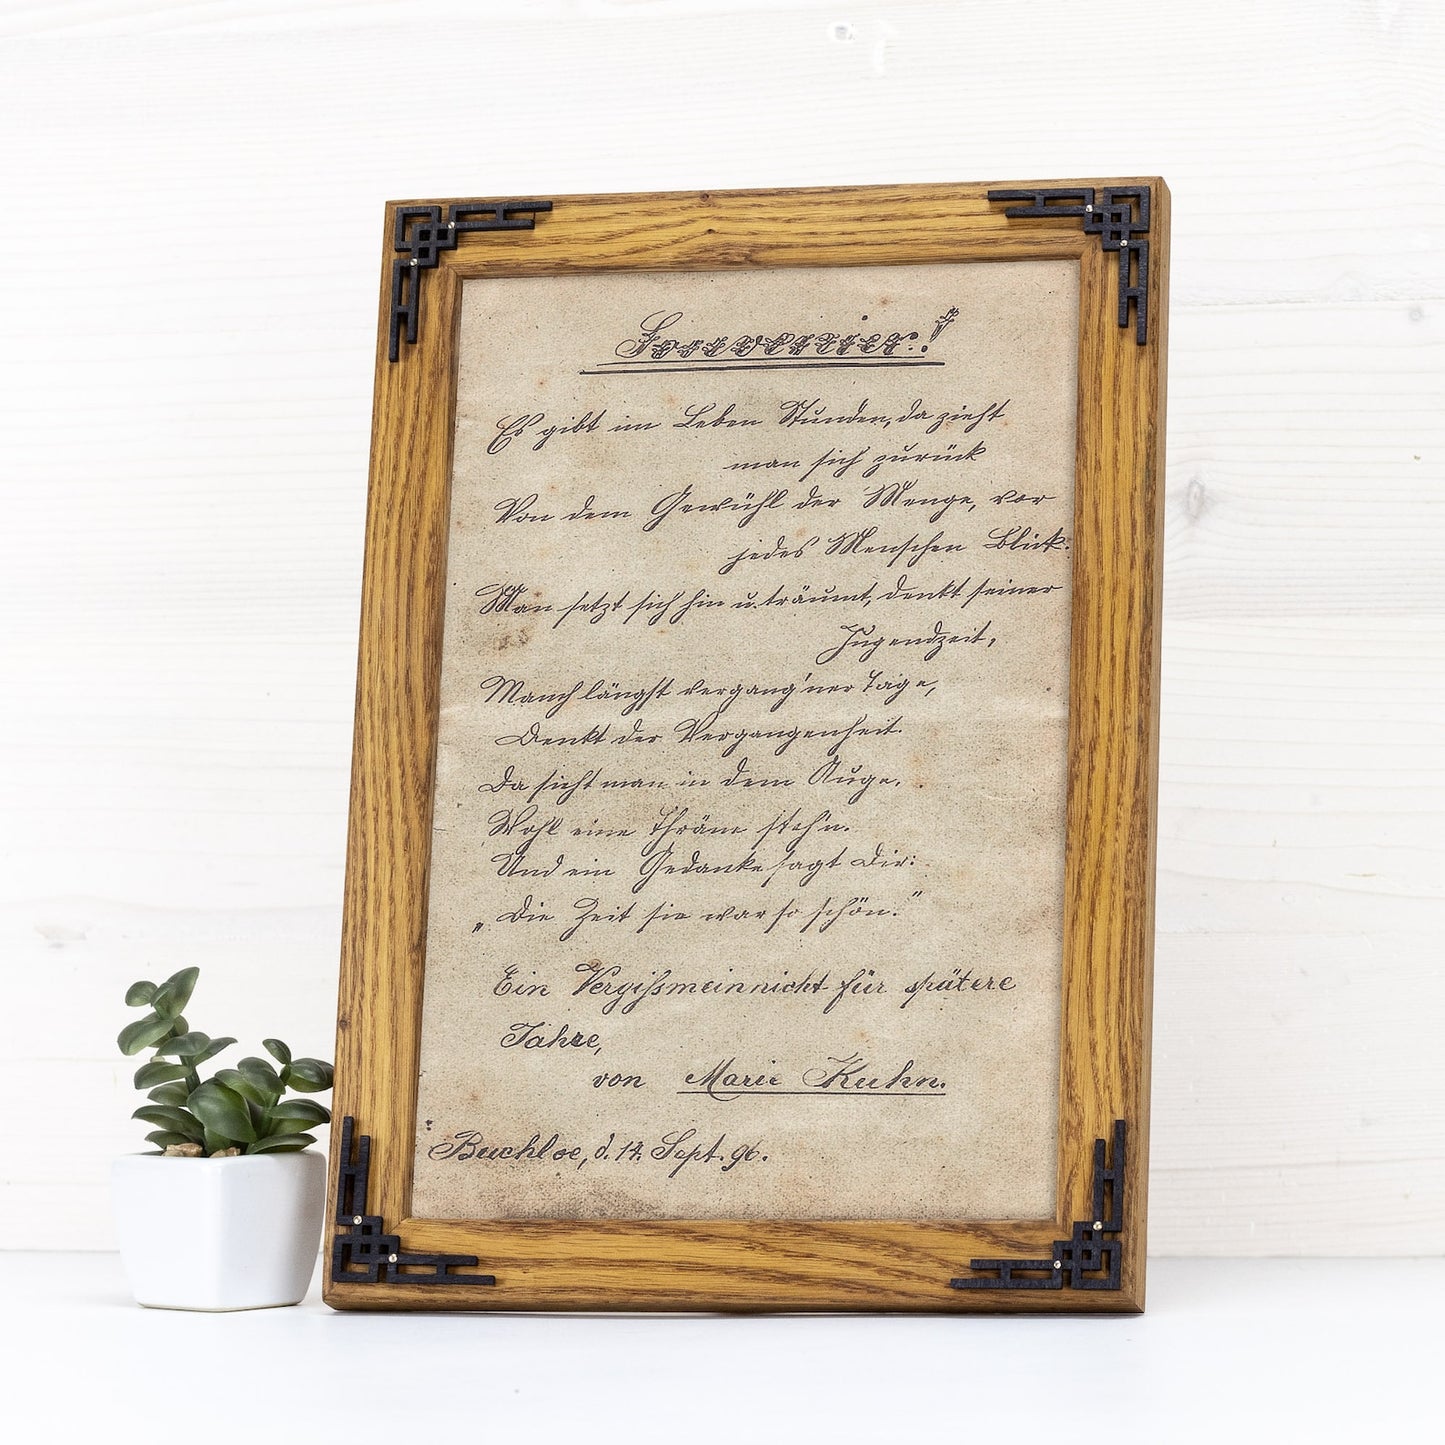 Souvenier!
Es gibt im Leben Stunden, da zieht
man sich zurück
Von dem Gewühl der Menge, vor
jedes Menschen Blick.
Man setzt sich hin u. träumt, denkt seiner
Jugendzeit,
Manch längst vergang'ner Tage,
Denkt der Vergangenheit.
Da sieht man in dem Auge,
Wohl eine Thräne steh'n.
Und ein Gedanke sagt Dir:
„Die Zeit sie war so schön."
Ein Vergißmeinnicht für spätere
Jahre,
von Marie Kuhn.
Buchloe, d. 14. Sept. 96.